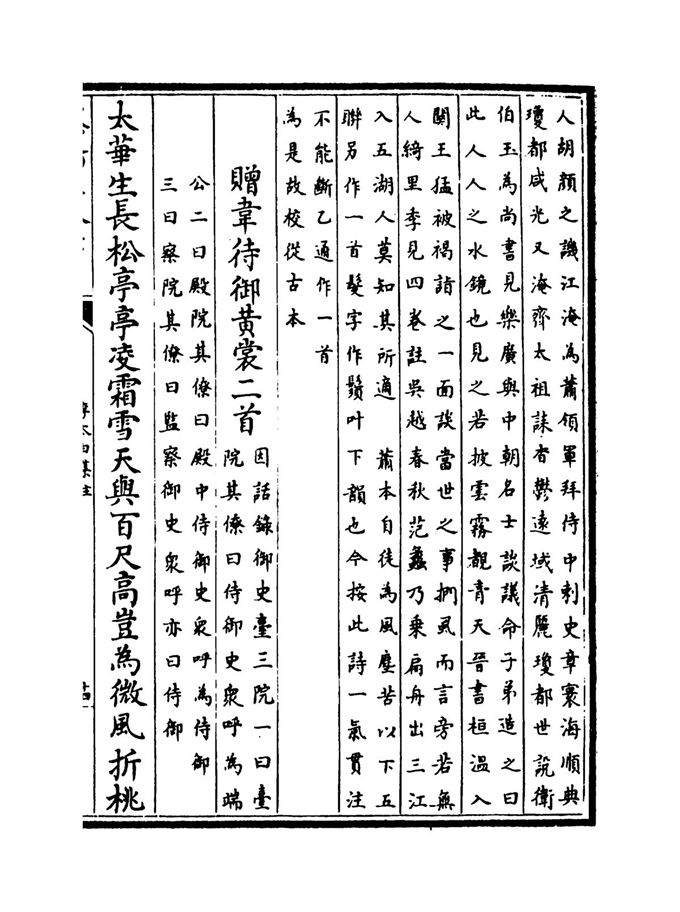 人胡顏之譏江淹為蕭領軍拜侍中刺史章寰海順典
瓊都咸光又淹齊太祖誄沓鬱遠域清麗瓊都世說衛
伯玉為尚書見樂廣與中朝名士談議命子弟造之曰
此人人之水鏡也見之若披雲霧覩青天晉書桓温入
關王猛被褐詣之一面談當世之事捫虱而言旁若無
人綺里季見四卷註吳越春秋范蠡乃乗扁舟出三江
入五湖人莫知其所適 蕭本自徒為風塵苦以下五
聯另作一首髮字作鬚叶下韻也今按此詩一氣貫注
不能斷乙通作一首
為是故校從古本
贈韋侍御黄裳二首
因話錄御史臺三院一曰臺
院其僚曰侍御史衆呼為端
公二曰殿院其僚曰殿中侍御史衆呼為侍御
三曰察院其僚曰監察御史衆呼亦曰侍御
太華生長松亭亭凌霜雪天與百尺高豈為微風折桃
李太白集注